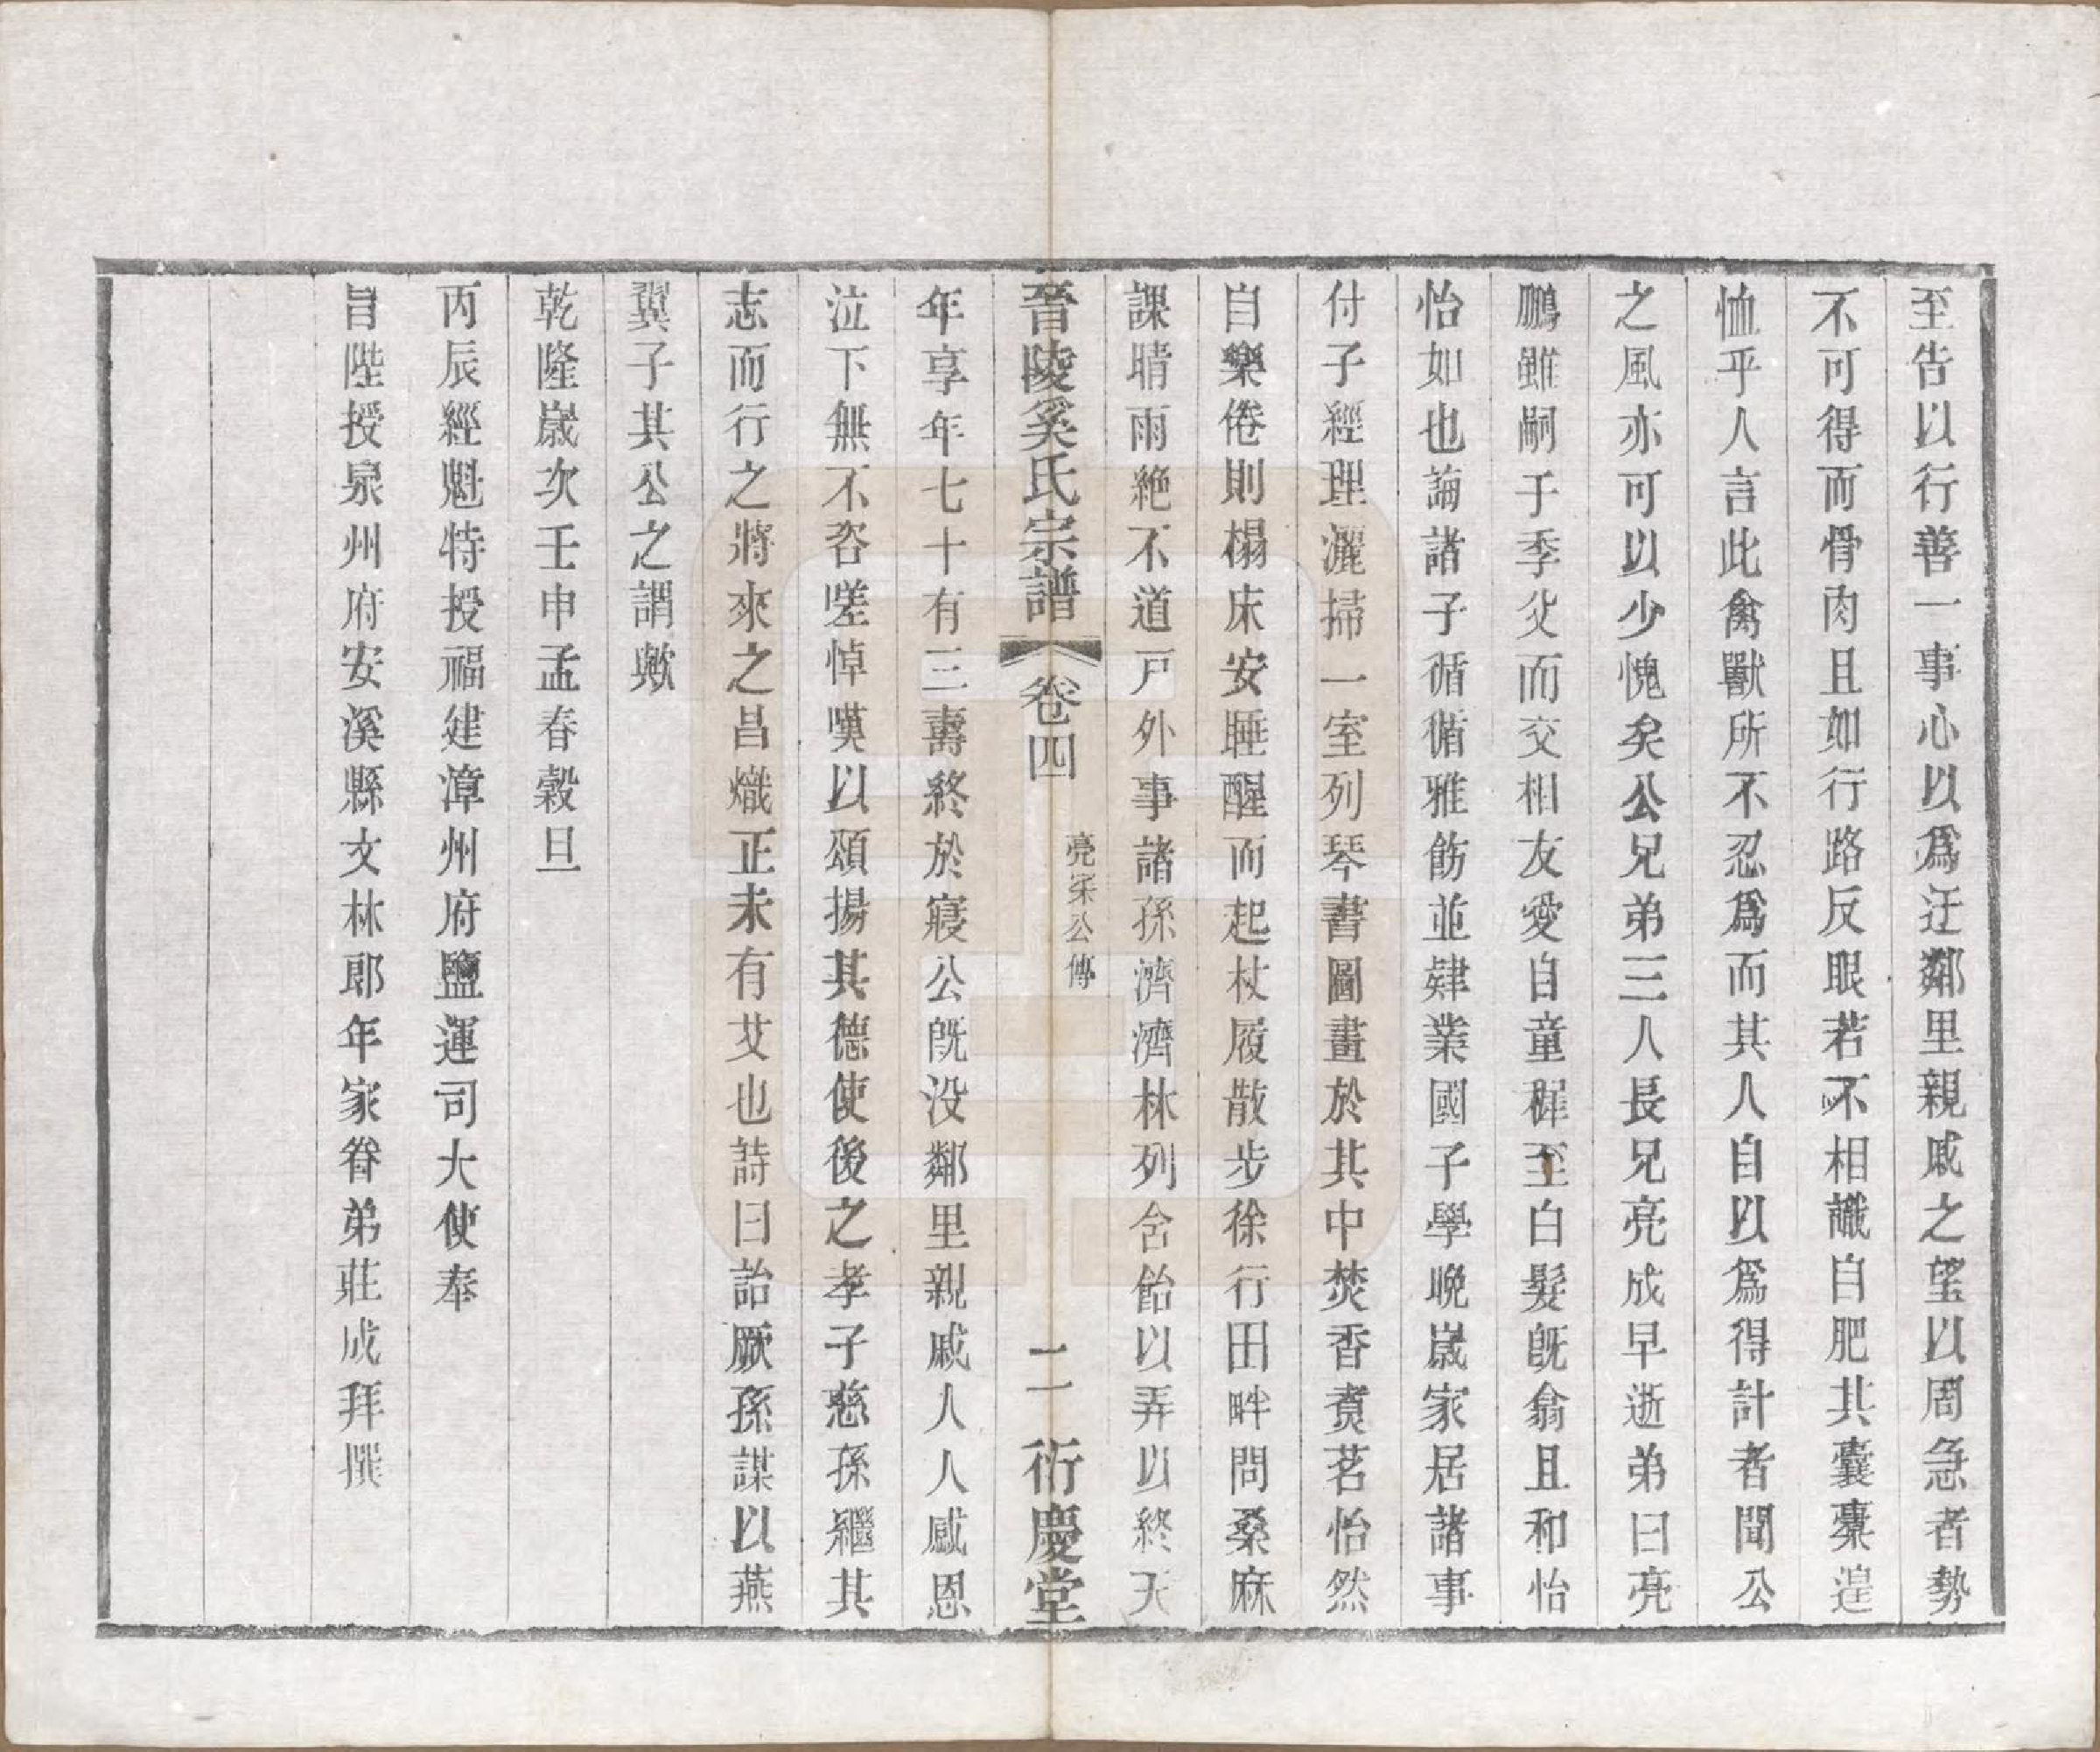 至告以行善一事心以爲迂鄰里親戚之望以周急者勢
不可得而骨肉且如行路反眼若不相識自肥其囊橐遑
恤乎人言此禽獸所不忍爲而其人自以爲得計者聞公
之風亦可以少愧矣公兄弟三人長兄亮成早逝弟曰亮
鵬雖嗣于季父而交相友愛自童穉至白髮旣翕且和怡
怡如也論諸子循循雅飭並肄業國子學晩歲家居諸事
付子經理灑掃一室列琴書圖畫於其中焚香煮茗怡然
自樂倦則榻床安睡醒而起杖履散步徐行田畔問桑麻
課晴雨絶不道戸外事諸孫濟濟林列含飴以弄以終天
晉陵奚氏宗譜 卷四 亮宋公傳 二 衍慶堂
年享年七十有三壽終於寢公旣没鄰里親戚人人感恩
泣下無不咨嗟悼嘆以頌揚其德使後之孝子慈孫繼其
志而行之將來之昌熾正未有艾也詩曰詒厥孫謀以燕
翼子其公之謂歟
乾隆歲次壬申孟春穀旦
丙辰經魁特授福建漳州府鹽運司大使奉
旨陞授泉州府安溪縣文林郎年家眷弟莊成拜撰